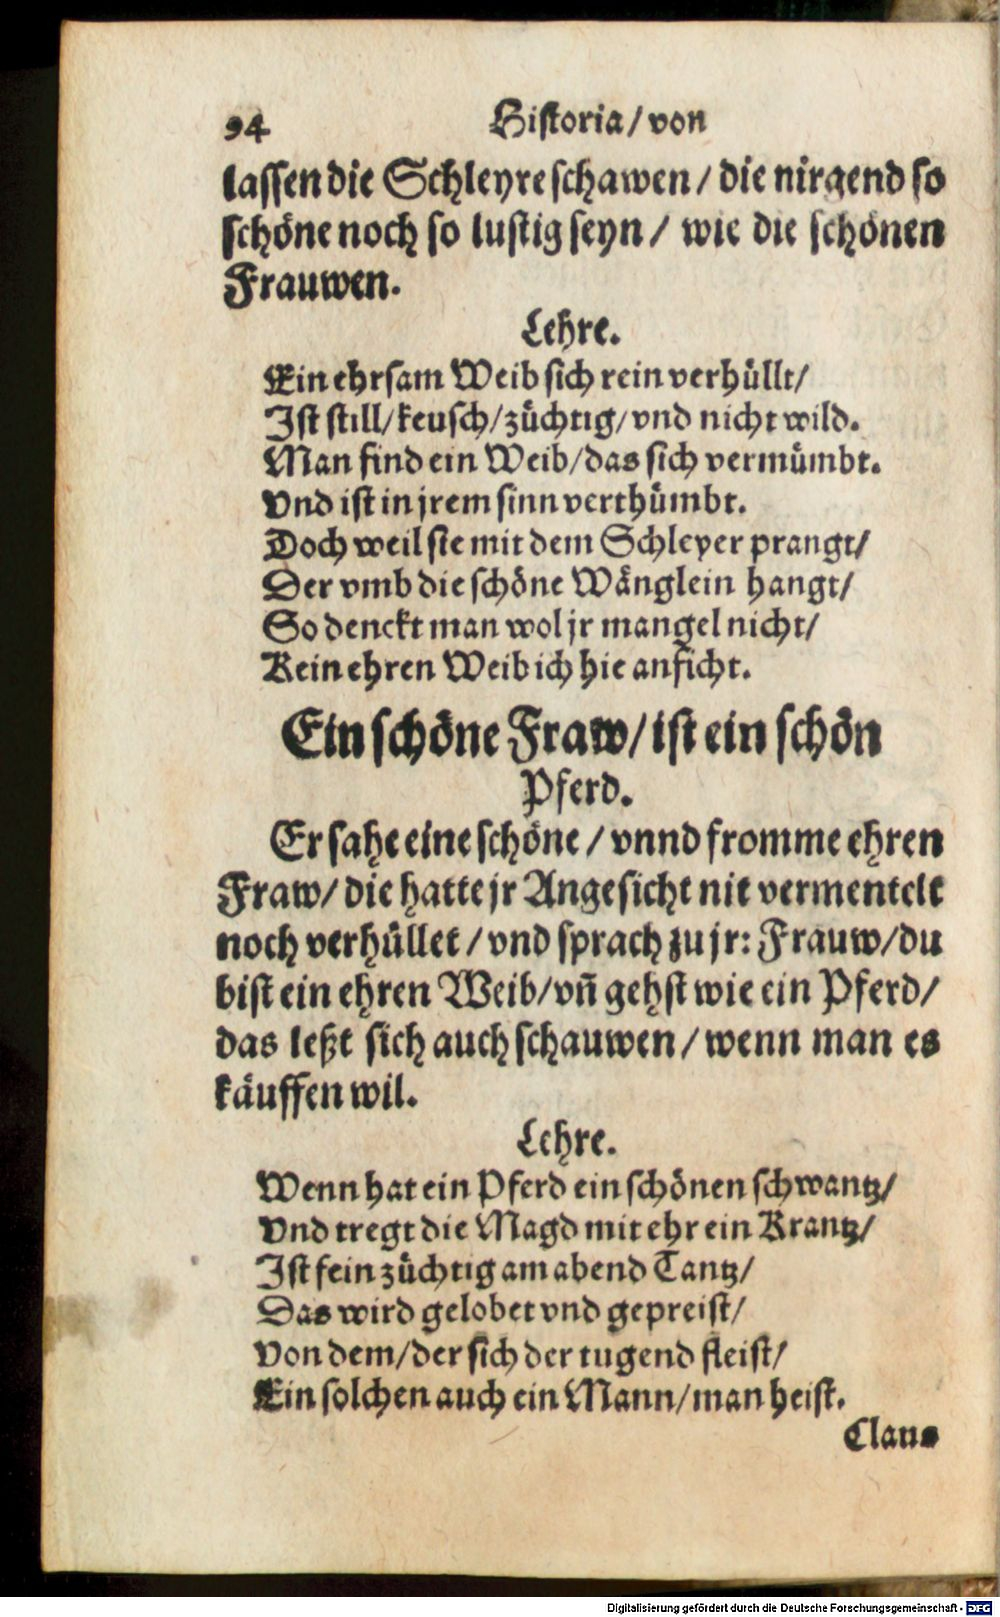 94 Historia/ von
lassen die Schleyre schawen/ die nirgend so
schöne noch so lustig seyn/ wie die schönen
Frauwen.
Lehre.
Ein ehrsam Weib sich rein verhüllt/
Ist still/ keusch/ züchtig/ vnd nicht wild.
Man find ein Weib/ das sich vermümbt.
Vnd ist in jrem sinn verthümbt.
Doch weil sie mit dem Schleyer prangt/
Der vmb die schöne Wänglein hangt/
So denckt man wol jr mangel nicht/
Kein ehren Weib ich hie anficht.
Ein schöne Fraw/ ist ein schön
Pferd.
Er sahe eine schöne/ vnnd fromme ehren
Fraw/ die hatte jr Angesicht nit vermentelt
noch verhüllet/ vnd sprach zu jr: Frauw/ du
bist ein ehren Weib/ vñ gehst wie ein Pferd/
das leßt sich auch schauwen/ wenn man es
käuffen wil.
Lehre.
Wenn hat ein Pferd ein schönen schwantz/
Vnd tregt die Magd mit ehr ein Krantz/
Ist fein züchtig am abend Tantz/
Das wird gelobet vnd gepreist/
Von dem/ der sich der tugend fleist/
Ein solchen auch ein Mann/ man heist.
Claus
Digitalisierung gefördert durch die Deutsche Forschungsgemeinschaft - DFG